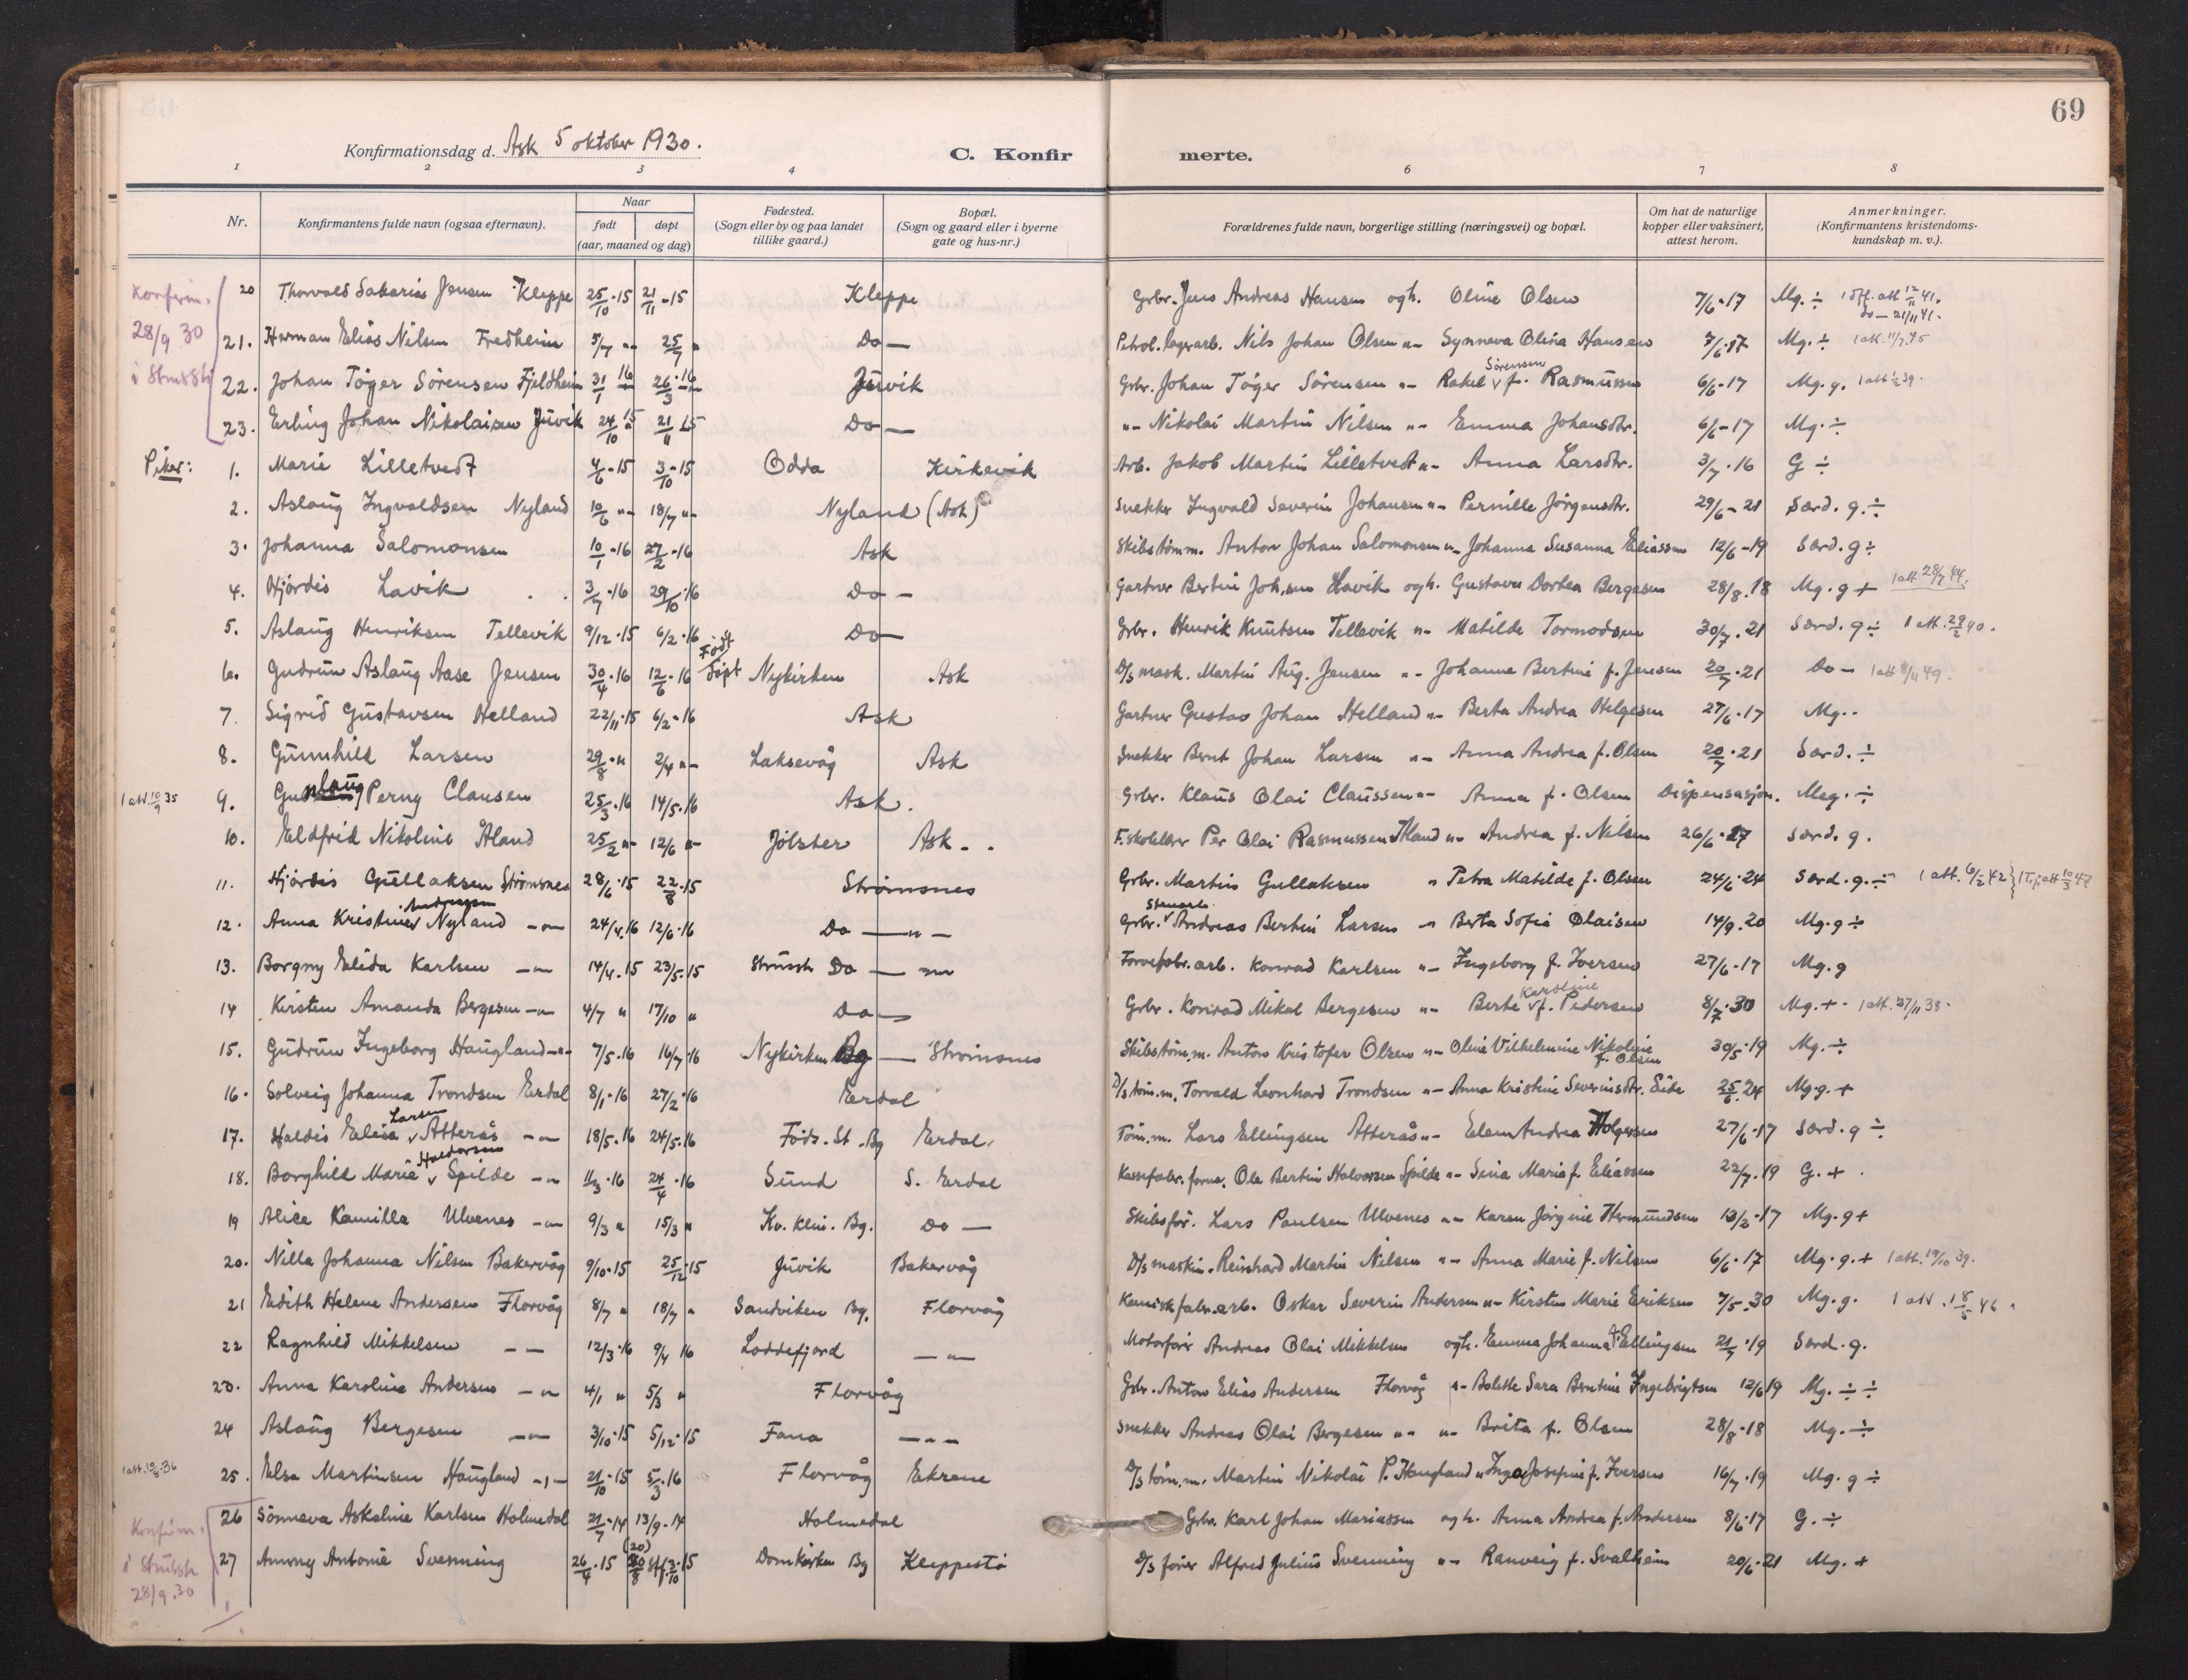 69
Konfirmationsdag d. Ask 5 oktober 1930.
C. Konfirmerte.
1 2 3 4 6 7 8
Nr. Konfirmantens fulde navn (ogsaa efternavn). Naar født døpt (aar, maaned og dag) Fødested. (Sogn eller by og paa landet tillike gaard.) Bopæl. (Sogn og gaard eller i byerne gate og hus-nr.) Forældrenes fulde navn, borgerlige stilling (næringsvei) og bopæl. Om hat de naturlige kopper eller vaksinert, attest herom. Anmerkninger. (Konfirmantens kristendoms-kundskap m. v.).
Konfirm. 28/9 30 i Strussh
20 Thorvald Sakarias Jensen Kleppe 25/10-15 21/11-15 Kleppe Grbr. Jens Andreas Hansen ogh. Oline Olsen 7/6-17 Mg. ÷ 1 off. att 12/11 41. Do — 21/11 41.
21. Herman Elias Nilsen Fredheim 5/7 "- 25/7 " Do — Petrol.lagerarb. Nils Johan Olsen "- Synneva Olina Hansen 7/6-17 Mg. ÷ 1 att. 11/7 45
22. Johan Tøger Sørensen Fjeldheim 31/1 16 26/3-16 Juvik Grbr. Johan Tøger Sørensen "- Rakel Sørensen f. Rasmussen 6/6-17 Mg. g. 1 att 39.
23. Erling Johan Nikolaisen Juvik 24/10 15 21/11 15 Do — "- Nikolai Martin Nilsen "- Emma Johansdtr. 6/6-17 Mg. ÷
Piker: 1. Marie Lilletvedt 4/6-15 3/10-15 Odda Kirkevik Arb. Jakob Martin Lilletvedt "- Anna Larsdtr. 3/7.16 G ÷
2. Aslaug Ingvaldsen Nyland 10/6 "- 18/7 "- Nyland (Ask) Snekker Ingvald Severin Johansen "- Pernille Jørgensdtr. 29/6-21 Særd. g. ÷
3. Johanna Salomonsen 10/1-16 27/2-16 Ask Skibstømm. Anton Johan Salomonsen "- Johanna Susanna Eliassen 12/6-19 Særd. g ÷
4. Hjørdis Lavik 3/7-16 29/10-16 Do — Gartner Bertin Joh.sen Lavik ogh. Gustava Dortea Bergesen 28/8.18 Mg. g + 1 att 28/7 44.
5. Aslaug Henriksen Tellevik 9/12.15 6/2.16 Do — Grbr. Henrik Knutsen Tellevik "- Matilde Tormodsen 30/7.21 Særd. g ÷ 1 att. 29/2 40.
6. Gudrun Aslaug Aase Jensen 30/4.16 12/6.16 Født Døpt Nykirken Ask D/s mask. Martin Aug. Jensen "- Johanna Bertine f. Jensen 20/7.21 Do — 1 att 8/11 49.
7. Sigrid Gustavsen Helland 22/11.15 6/2-16 Ask Gartner Gustav Johan Helland "- Berta Andrea Helgesen 27/6.17 Mg..
8. Gunnhild Larsen 29/8." 2/4 "- Laksevåg Ask Snekker Bernt Johan Larsen "- Anna Andrea f. Olsen 20/7.21 Særd. ÷
1 att. 10/9 35 9. Gunnlaug Perny Clausen 25/3.16 14/5.16 Ask. Grbr. Klaus Olai Claussen "- Anna f. Olsen Dispensasjon. Meg. ÷
10. Eldfrid Nikoline Åland 25/2 "- 12/6 "- Jølster Ask.. F.skolelærer Per Olai Rasmussen Åland "- Andrea f. Nilsen 26/6.27 Særd. g.
11. Hjørdis Gullaksen Strømsnes 28/6.15 22/8.15 Strømsnes Grbr. Martin Gullaksen " Petra Matilde f. Olsen 24/6.24 Særd. g. ÷ 1 att. 6/2 42 } att 10/3 47
12. Anna Kristine Andreasen Nyland —"— 24/4.16 12/6.16 Do —"— Grbr. Stenarb. Andreas Bertin Larsen " Berta Sofia Olaisen 14/9.20 Mg. g ÷
13. Borgny Elida Karlsen —"— 14/4.15 23/5.15 Strussh Do —"— Farvefabr.arb. Konrad Karlsen "- Ingeborg f. Iversen 27/6.17 Mg. g
14 Kirsten Amanda Bergesen —"— 4/7 " 17/10 " Do — Grbr. Konrad Mikal Bergesen "- Berte Karoline f. Pedersen 8/7.30 Mg. +. 1 att. 27/11 38.
15. Gudrun Ingeborg Haugland —"— 7/5.16 16/7.16 Nykirken Bg — Strømsnes Skibstøm.m. Anton Kristofer Olsen "- Oline Vilhelmine Nikoline f. Olsen 30/5.19 Mg. ÷
16. Solveig Johanna Trondsen Erdal 8/1.16 27/2.16 Erdal D/s tøm.m. Torvald Leonhard Trondsen "- Anna Kristine Severinsdtr. Eide 25/6.24 Mg. g. +
17. Haldis Elisa Larsen Atterås —"— 18/5.16 24/5.16 Føds. St. Bg Erdal. Tøm.m. Lars Ellingsen Atterås "- Elen Andrea Holgersen 27/6.17 Særd. g ÷
18. Borghild Marie Haldorsen Spilde —"— 11/3.16 24/4.16 Sund S. Erdal Kassefabr.form. Ole Bertin Halvorsen Spilde "- Sina Maria f. Eliassen 22/7.19 G. +.
19 Alice Kamilla Ulvenes —"— 9/3 " 15/3 " Kv. klin. Bg. Do — Skibsfør. Lars Paulsen Ulvenes "- Karen Jørgine Hermundsen 13/2.17 Mg. g +
20. Nilla Johanna Nilsen Bakervåg 9/10.15 25/12.15 Juvik Bakervåg D/s maskin. Reinhard Martin Nilsen "- Anna Marie f. Nilsen 6/6.17 Mg. g. + 1 att. 19/10 39.
21 Edith Helene Andersen Florvåg 8/7 " 18/7 " Sandviken Bg. Florvåg Kemiskfabr.arb. Oskar Severin Andersen "- Kirsten Marie Eriksen 7/5.30 Mg. g. 1 att. 18/5 46
22 Ragnhild Mikkelsen — — 12/3.16 9/4 16 Loddefjord —"— Motorfører Andreas Olai Mikkelsen ogh. Emma Johanna f. Ellingsen 21/7.19 Særd. g.
23. Anna Karoline Andersen —"— 4/1 " 5/3 " Florvåg Grbr. Anton Elias Andersen Florvåg "- Bolette Sara Berntine Ingebrigtsen 12/6 19 Mg. ÷ ÷
24 Aslaug Bergesen —"— 3/10.15 5/12.15 Fana —"— Snekker Andreas Olai Bergesen " "- Brita f. Olsen 28/8.18 Mg. ÷
1 att. 36 25. Elsa Martinsen Haugland —"— 21/10.15 5/3.16 Florvåg Ekrene D/s tøm.m. Martin Nikolai P. Haugland " Inga Josefine f. Iversen 16/7.19 Mg. g ÷
Konfirm. i Strussh 28/9.30
26 Sønneva Askeline Karlsen Holmedal 21/7.14 13/9-14 Holmedal Grbr. Karl Johan Mariussen ogh. Anna Andrea f. Andersen 8/6.17 G. ÷
27 Ammy Antonie Svenning 26/4.15 (20) 30/8 stf. 3/10.15 Domkirken Bg Kleppestø D/s fører Alfred Julius Svenning "- Ranveig f. Svalheim 20/6.21 Mg. +